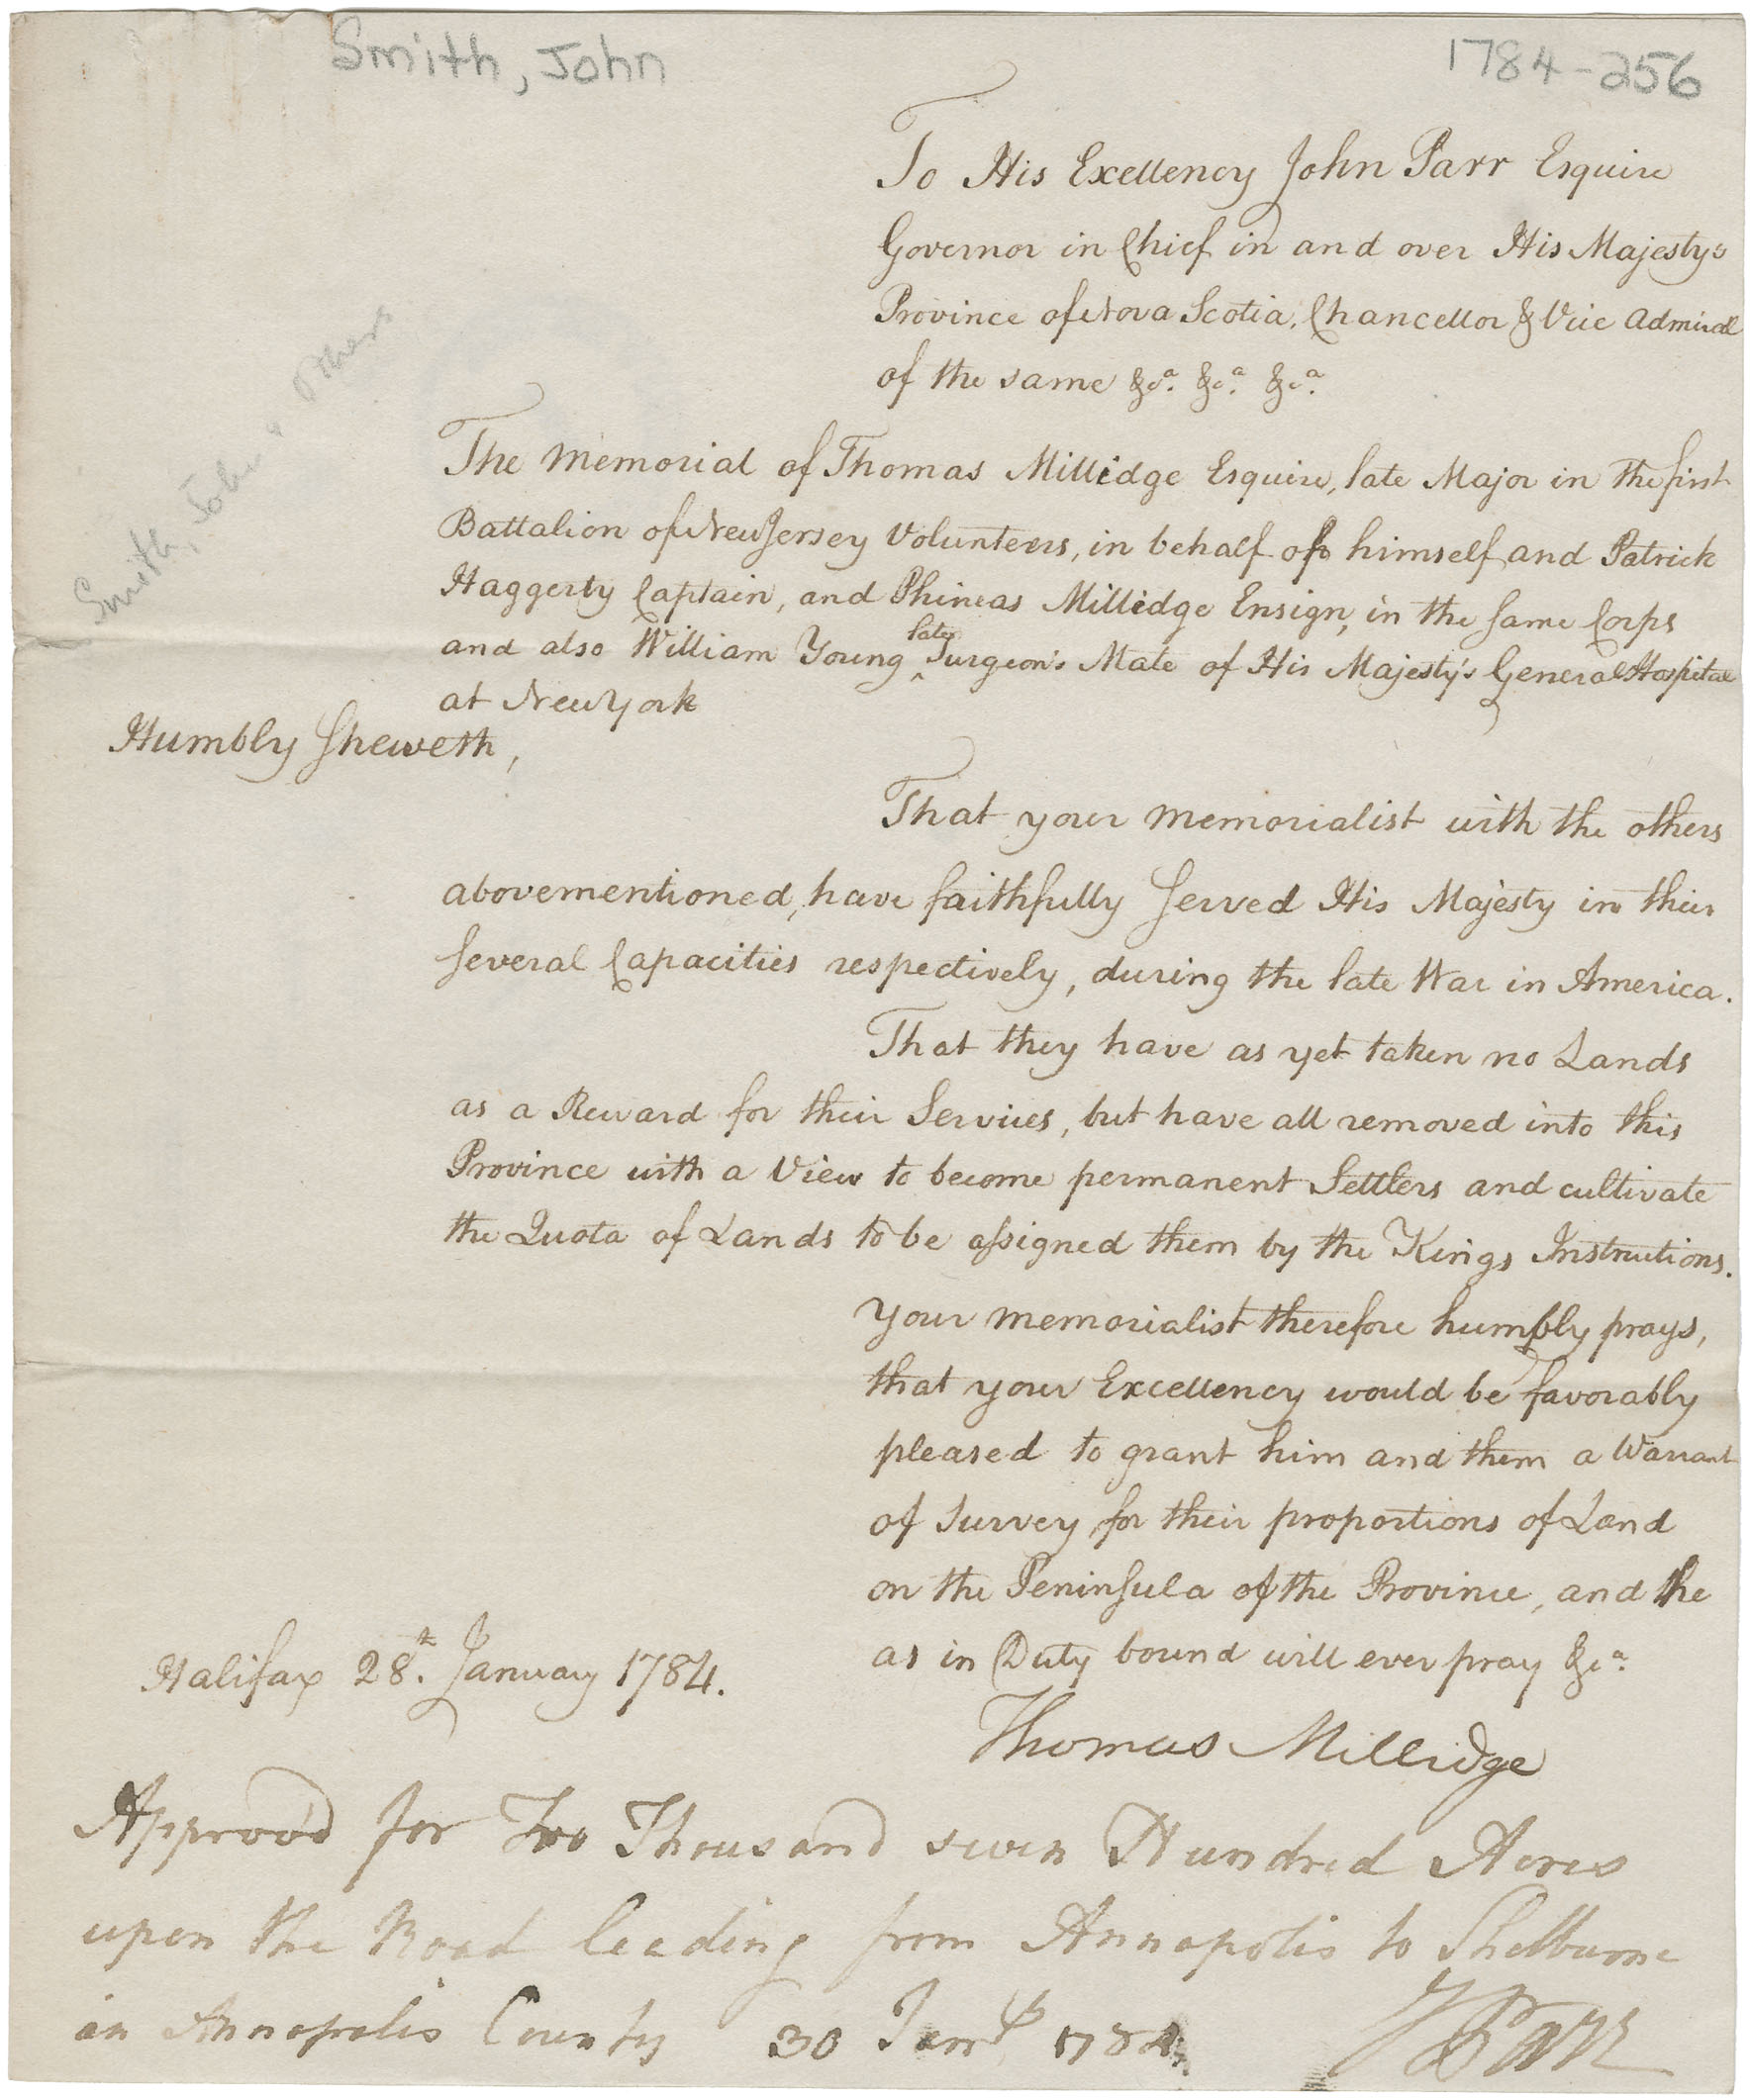 Smith, John
1784-256
To His Exellency John Parr Esquire
Governor in Chief in and over His Majestys
Province of Nova Scotia, Chancellor & Vice Admiral
of the same &ca. &ca. &ca.
Smith, John & others
The Memorial of Thomas Millidge Esquire, late Major in the first
Battalion of New Jersey Volunteers, in behalf of himself and Patrick
Haggerty Captain, and Phineas Millidge Ensign, in the same Corps
and also William Young late Surgeon's Mate of His Majesty's General Hospital
at New York
Humbly Sheweth,
That your Memorialist with the others
abovementioned, have faithfully Served His Majesty in their
several Capacities respectively, during the late War in America.
That they have as yet taken no Lands
as a Reward for their Services, but have all removed into this
Province with a View to become permanent Settlers and cultivate
the Quota of Lands to be assigned them by the Kings Instructions.
Your Memorialist therefore humbly prays,
that your Excellency would be favorably
pleased to grant him and them a Warrant
of Survey for their proportions of Land
on the Peninsula of the Province, and he
as in Duty bound will ever pray &ca.
Halifax 28th. January 1784.
Thomas Millidge
Approv'd for Two Thousand seven Hundred Acres
upon the Road leading from Annapolis to Shelburne
in Annapolis County 30 Janry 1784.
J Parr